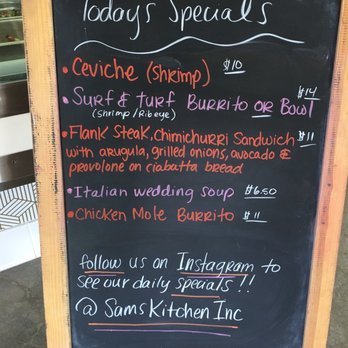 Today's Specials
• Ceviche (shrimp) $10
• Surf & Turf Burrito OR Bowl $14
(Shrimp/Ribeye)
• Flank Steak, Chimichurri Sandwich $11
with arugula, grilled onions, avocado &
provolone on ciabatta bread
• Italian wedding soup $6.50
• Chicken Mole Burrito $11
follow us on Instagram to
see our daily specials !!
@ SamsKitchenInc